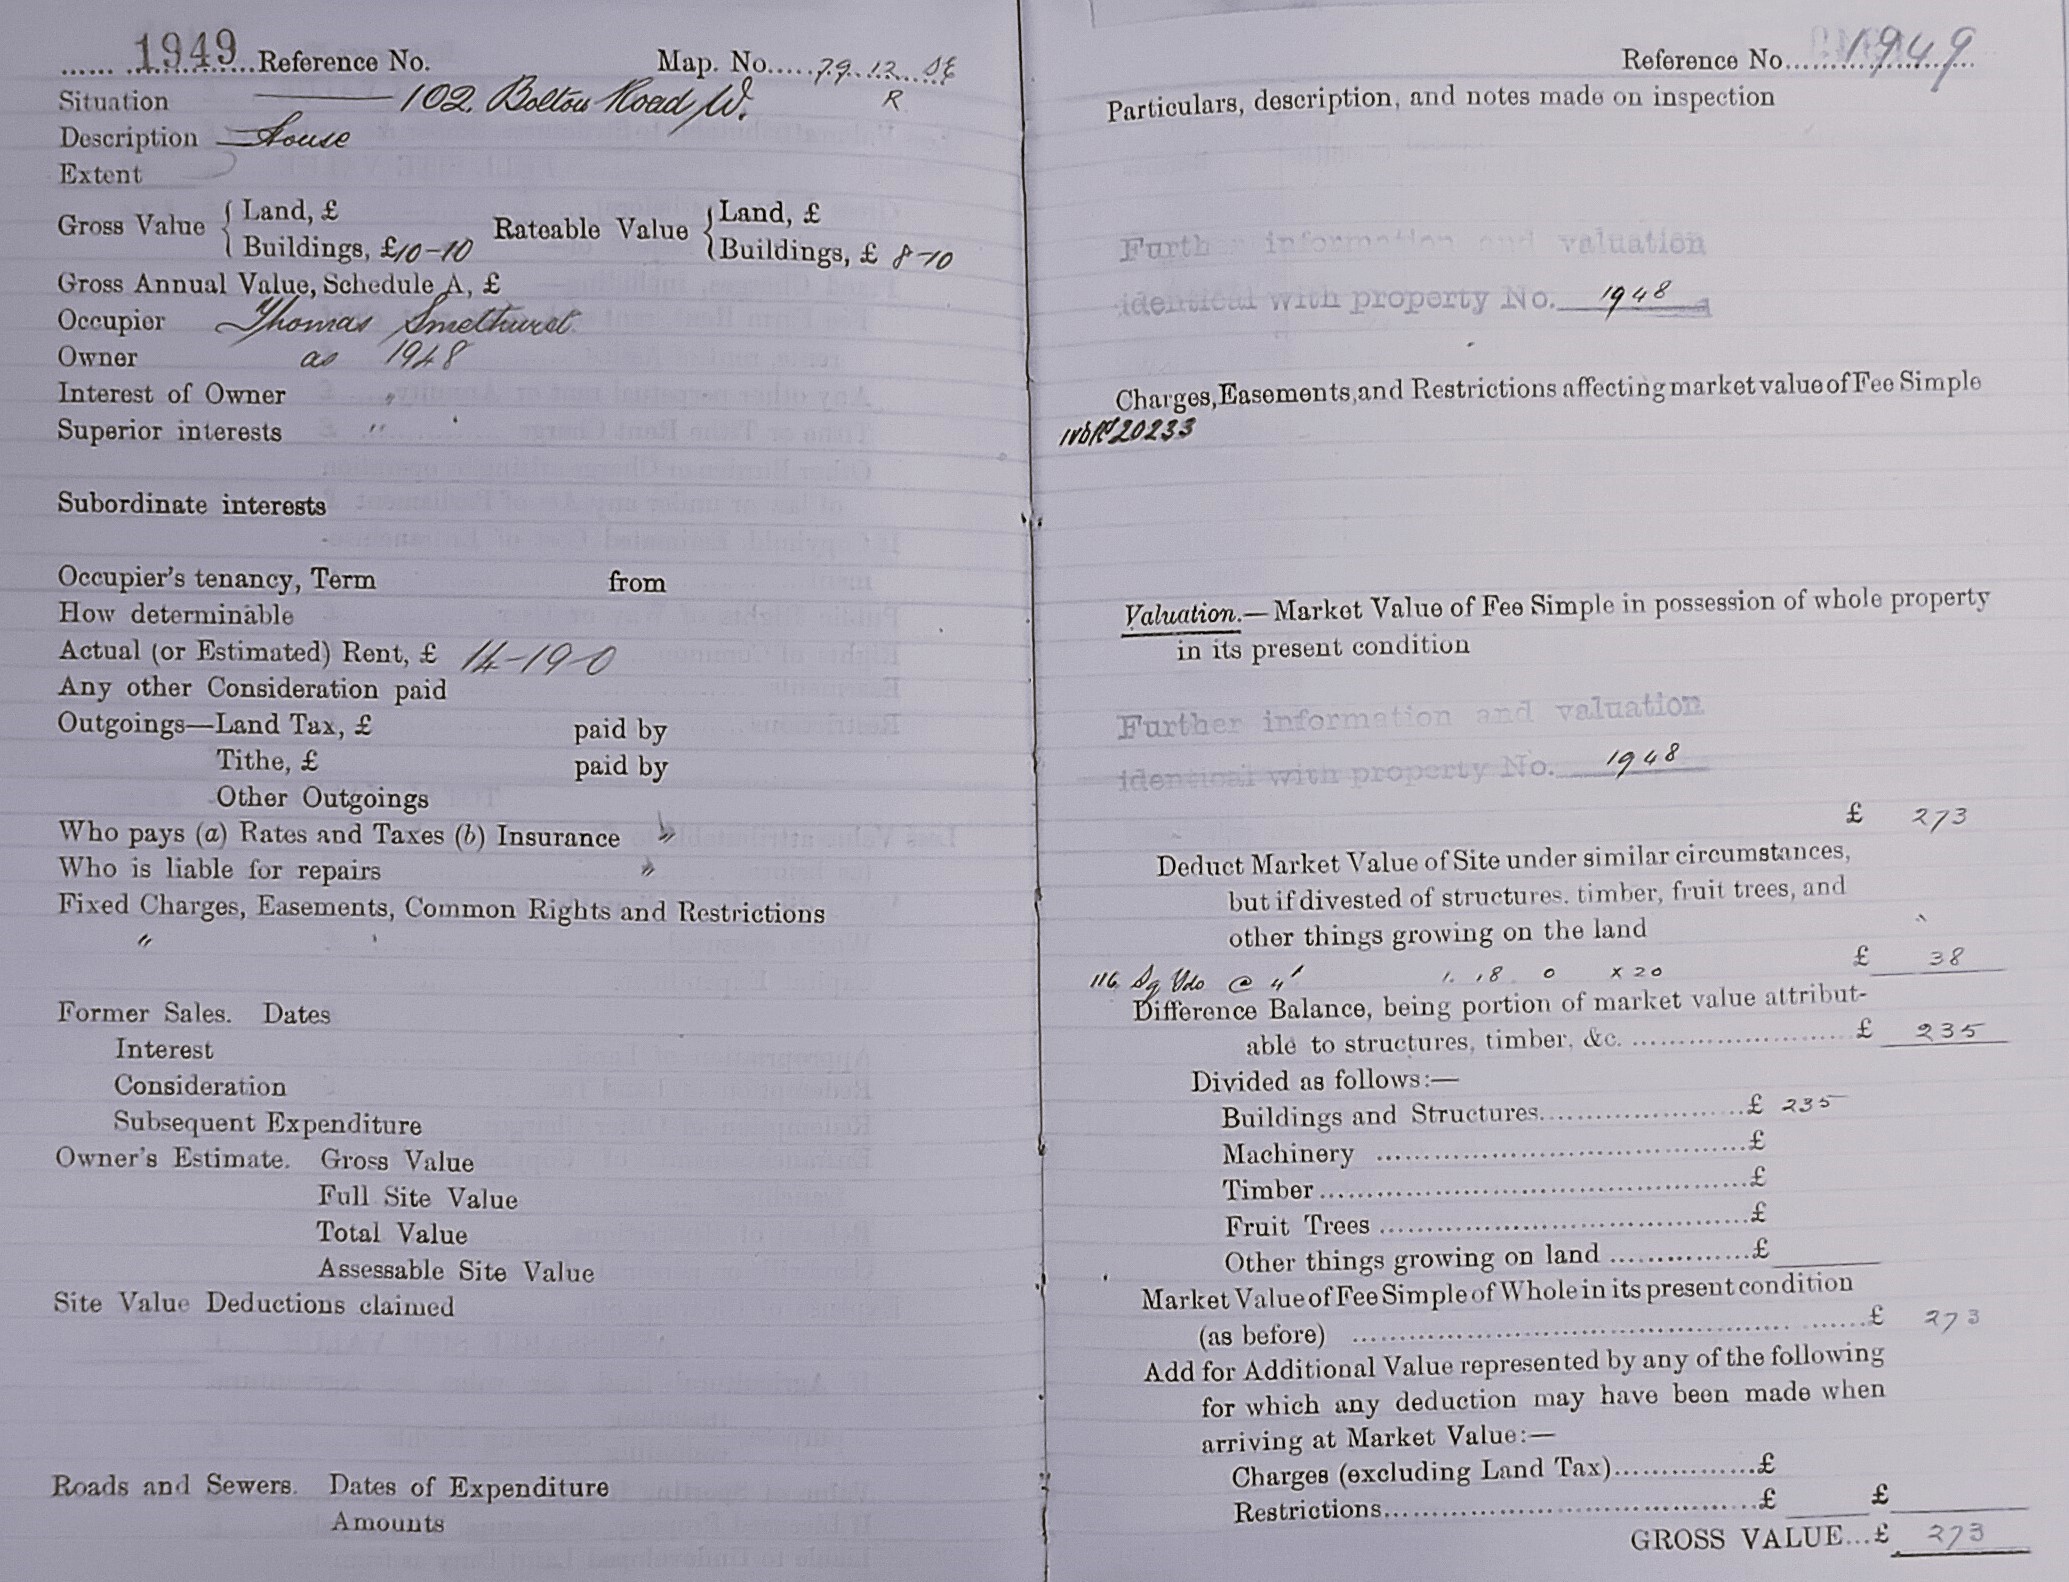 1949 Reference No. Map. No. 79.12 SE
R
Situation 102 Bolton Road W.
Description House
Extent
Gross Value { Land, £
Buildings, £10-10
Rateable Value { Land, £
Buildings, £ 8-10
Gross Annual Value, Schedule A, £
Occupier Thomas Smethurst
Owner as 1948
Interest of Owner "
Superior interests "
Subordinate interests
Occupier's tenancy, Term from
How determinable
Actual (or Estimated) Rent, £ 14-19-0
Any other Consideration paid
Outgoings—Land Tax, £ paid by
Tithe, £ paid by
Other Outgoings
Who pays (a) Rates and Taxes (b) Insurance "
Who is liable for repairs "
Fixed Charges, Easements, Common Rights and Restrictions
"
Former Sales. Dates
Interest
Consideration
Subsequent Expenditure
Owner's Estimate. Gross Value
Full Site Value
Total Value
Assessable Site Value
Site Value Deductions claimed
Roads and Sewers. Dates of Expenditure
Amounts
Reference No. 1949
Particulars, description, and notes made on inspection
Further information and valuation
identical with property No. 1948
Charges, Easements, and Restrictions affecting market value of Fee Simple
20233
Valuation.—Market Value of Fee Simple in possession of whole property
in its present condition
Further information and valuation
identical with property No. 1948
£ 273
Deduct Market Value of Site under similar circumstances,
but if divested of structures, timber, fruit trees, and
other things growing on the land
£ 38
116 Sq Yds @ 4' 1. 18 0 x 20
Difference Balance, being portion of market value attribut-
able to structures, timber, &c. £ 235
Divided as follows:—
Buildings and Structures £ 235
Machinery £
Timber £
Fruit Trees £
Other things growing on land £
Market Value of Fee Simple of Whole in its present condition
(as before) £ 273
Add for Additional Value represented by any of the following
for which any deduction may have been made when
arriving at Market Value:—
Charges (excluding Land Tax) £
Restrictions £ £
GROSS VALUE...£ 273